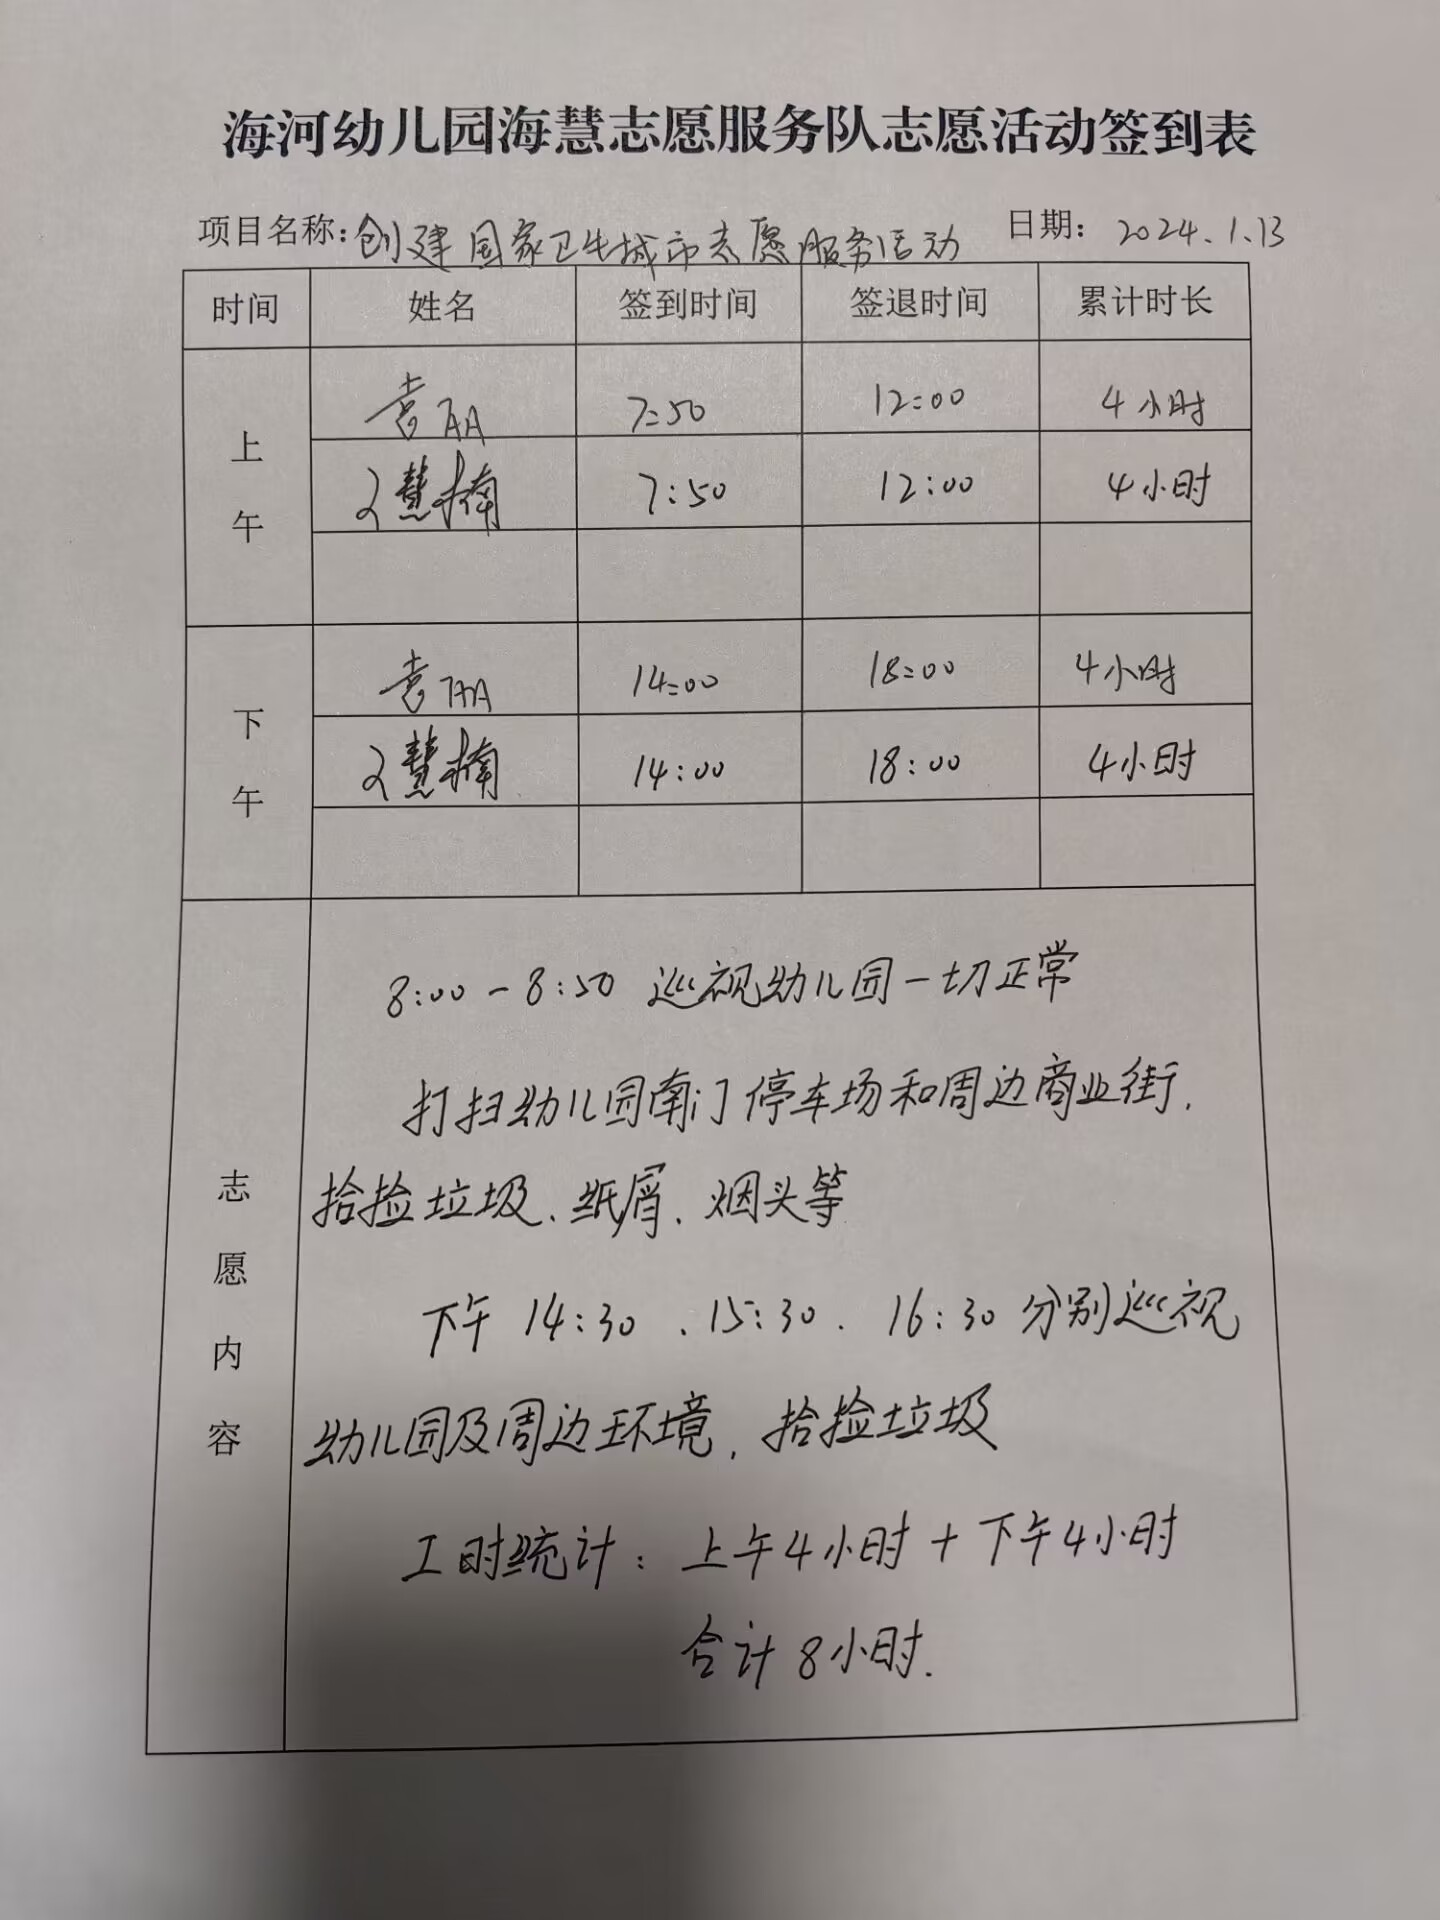 海河幼儿园海慧志愿服务队志愿活动签到表
项目名称：创建国家卫生城市志愿服务活动 日期： 2024.1.13
时间 姓名 签到时间 签退时间 累计时长
上午
袁丽 7:50 12:00 4小时
慧楠 7:50 12:00 4小时
下午
袁丽 14:00 18:00 4小时
慧楠 14:00 18:00 4小时
志愿内容
8:00-8:50 巡视幼儿园一切正常
打扫幼儿园南门停车场和周边商业街.
拾捡垃圾、纸屑、烟头等
下午 14:30、15:30、16:30分别巡视
幼儿园及周边环境，拾捡垃圾
工时统计：上午4小时+下午4小时
合计8小时.